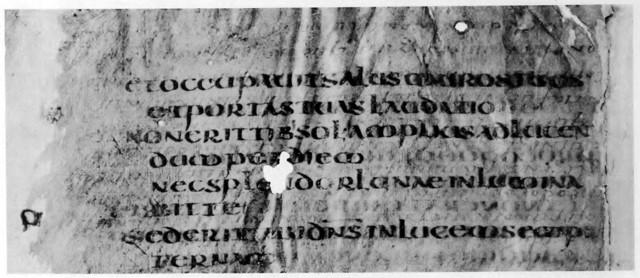 ET OCCUPAUIT SALUS MUROS TUOS
ET PORTAS TUAS LAUDATIO
NON ERIT TIBI SOL AMPLIUS AD LUCEN
DUM PER DIEM
NEC SPLENDOR LUNAE INLUMINA
BIT TE
SED ERIT TIBI DNS IN LUCEM SEMPI
TERNAM